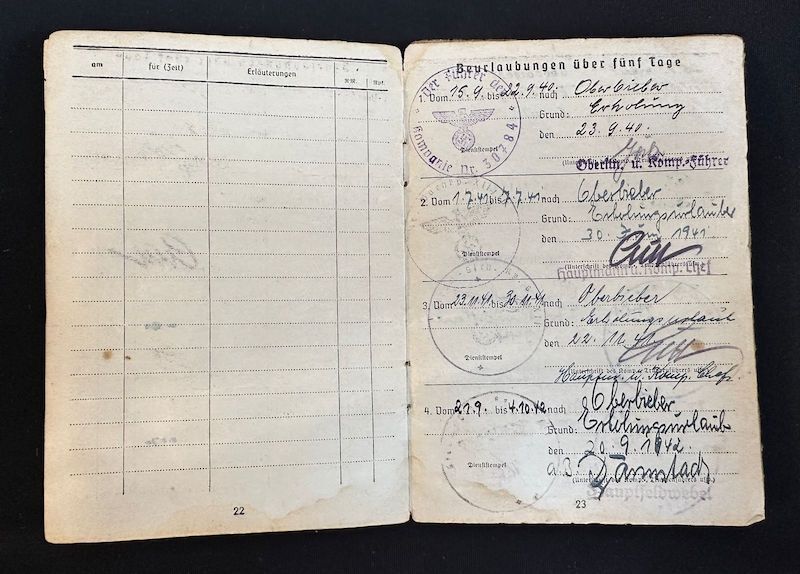 am für (Zeit) Erläuterungen
22
Beurlaubungen über fünf Tage
1. Vom 15.9. bis 22.9.40. nach Oberbieber
Grund: Erholung
den 23.9.40.
Dienststempel
Der Führer der
Kompanie Nr. 30784
Oberltn. u. Komp.-Führer
2. Vom 1.7.41 bis 7.7.41 nach Oberbieber
Grund: Erholungsurlauber
den 30. Juni 1941
Dienststempel
Hauptmann u. Komp. Chef
3. Vom 23.11.41 bis 30.11.41 nach Oberbieber
Grund: Erholungsurlaub
den 22.11.41
Dienststempel
Hauptm. u. Komp. Chef
4. Vom 21.9. bis 4.10.42 nach Oberbieber
Grund: Erholungsurlaub
den 20.9.1942
Dienststempel
Hauptfeldwebel
23